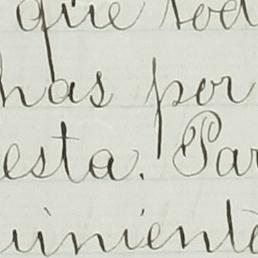 que tod
has por
esta. Par
uiniente